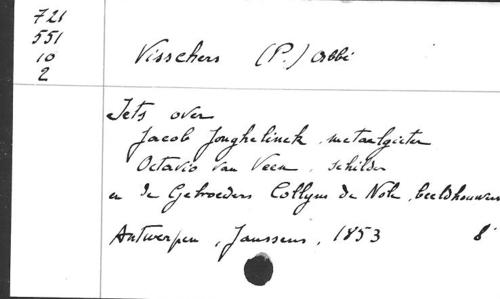 721
551
10
2
Visschers (P.) Abbé
Iets over
Jacob Jonghelinck, metaalgieter
Octavio Van Veen, schilder
en de Gebroeders Collyns de Nole, beeldhouwers
Antwerpen, Janssens, 1853 8°